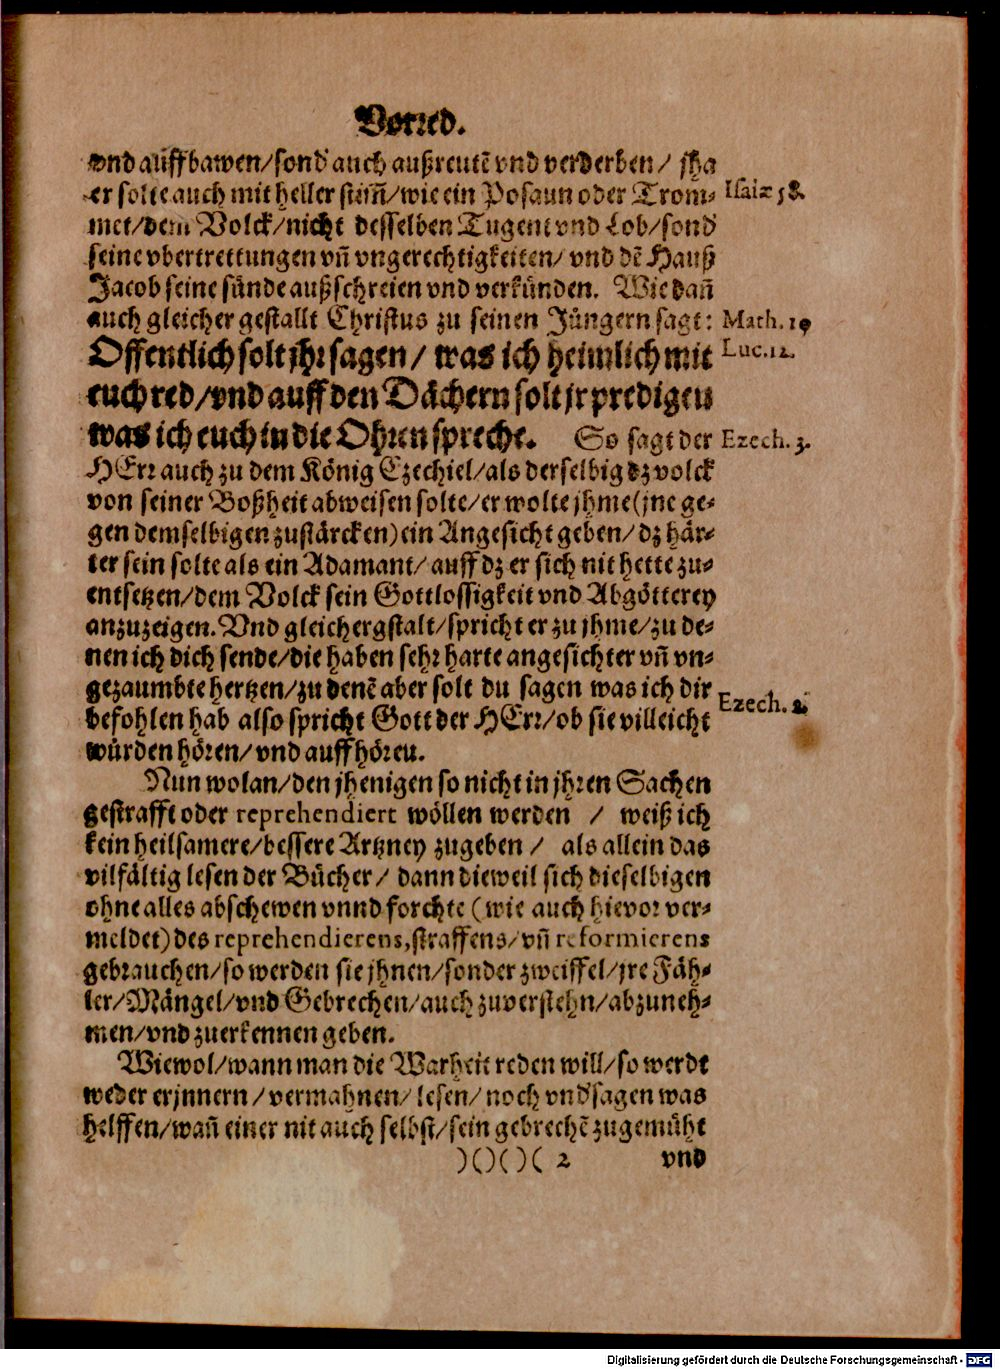 Vorred.
vnd auffbawen/sond' auch außreutē vnd verderben/ jha
er solte auch mit heller stim̄/wie ein Posaun oder Trom-
Isaiæ 58.
met/dem Volck/nicht desselben Tugent vnd Lob/sond'
seine vbertrettungen vn̄ vngerechtigkeiten/ vnd dē Hauß
Jacob seine sünde außschreien vnd verkünden. Wie dan̄
auch gleicher gestallt Christus zu seinen Jüngern sagt:
Math. 10
Offentlich solt jhr sagen/ was ich heimlich mit
Luc.12.
euch red/vnd auff den Dächern solt jr predigen
was ich euch in die Ohren spreche. So sagt der
Ezech. 3.
HErr auch zu dem König Ezechiel/als derselbig dz volck
von seiner Boßheit abweisen solte/er wolte jhme(jne ge-
gen demselbigen zustärcken)ein Angesicht geben/ dz här-
ter sein solte als ein Adamant/ auff dz er sich nit hette zu-
entsetzen/dem Volck sein Gottlossigkeit vnd Abgötterey
anzuzeigen. Vnd gleichergstalt/spricht er zu jhme/zu de-
nen ich dich sende/die haben sehr harte angesichter vn̄ vn-
gezaumbte hertzen/zu denē aber solt du sagen was ich dir
Ezech. 2.
befohlen hab also spricht Gott der HErr/ob sie villeicht
würden hören/vnd auffhöreu.
Nun wolan/den jhenigen so nicht in jhren Sachen
gestrafft oder reprehendiert wöllen werden / weiß ich
kein heilsamere/bessere Artzney zugeben / als allein das
vilfältig lesen der Bücher/ dann dieweil sich dieselbigen
ohne alles abschewen vnnd forchte (wie auch hievor ver-
meldet)des reprehendierens,straffens/vn̄ reformierens
gebrauchen/so werden sie jhnen/sonder zweiffel/jre Fäh-
ler/Mängel/vnd Gebrechen/auch zuverstehn/abzuneh-
men/vnd zuerkennen geben.
Wiewol/wann man die Warheit reden will/so werdt
weder erjnnern/vermahnen/lesen/noch vnd'sagen was
helffen/wan̄ einer nit auch selbst/sein gebrechē zugemüht
)()()( 2
vnd
Digitalisierung gefördert durch die Deutsche Forschungsgemeinschaft - DFG